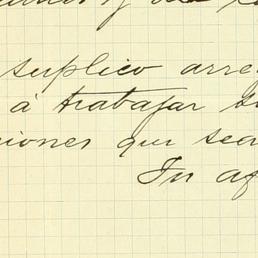 suplico arre
à trabajar
ciones que sea
Tu af